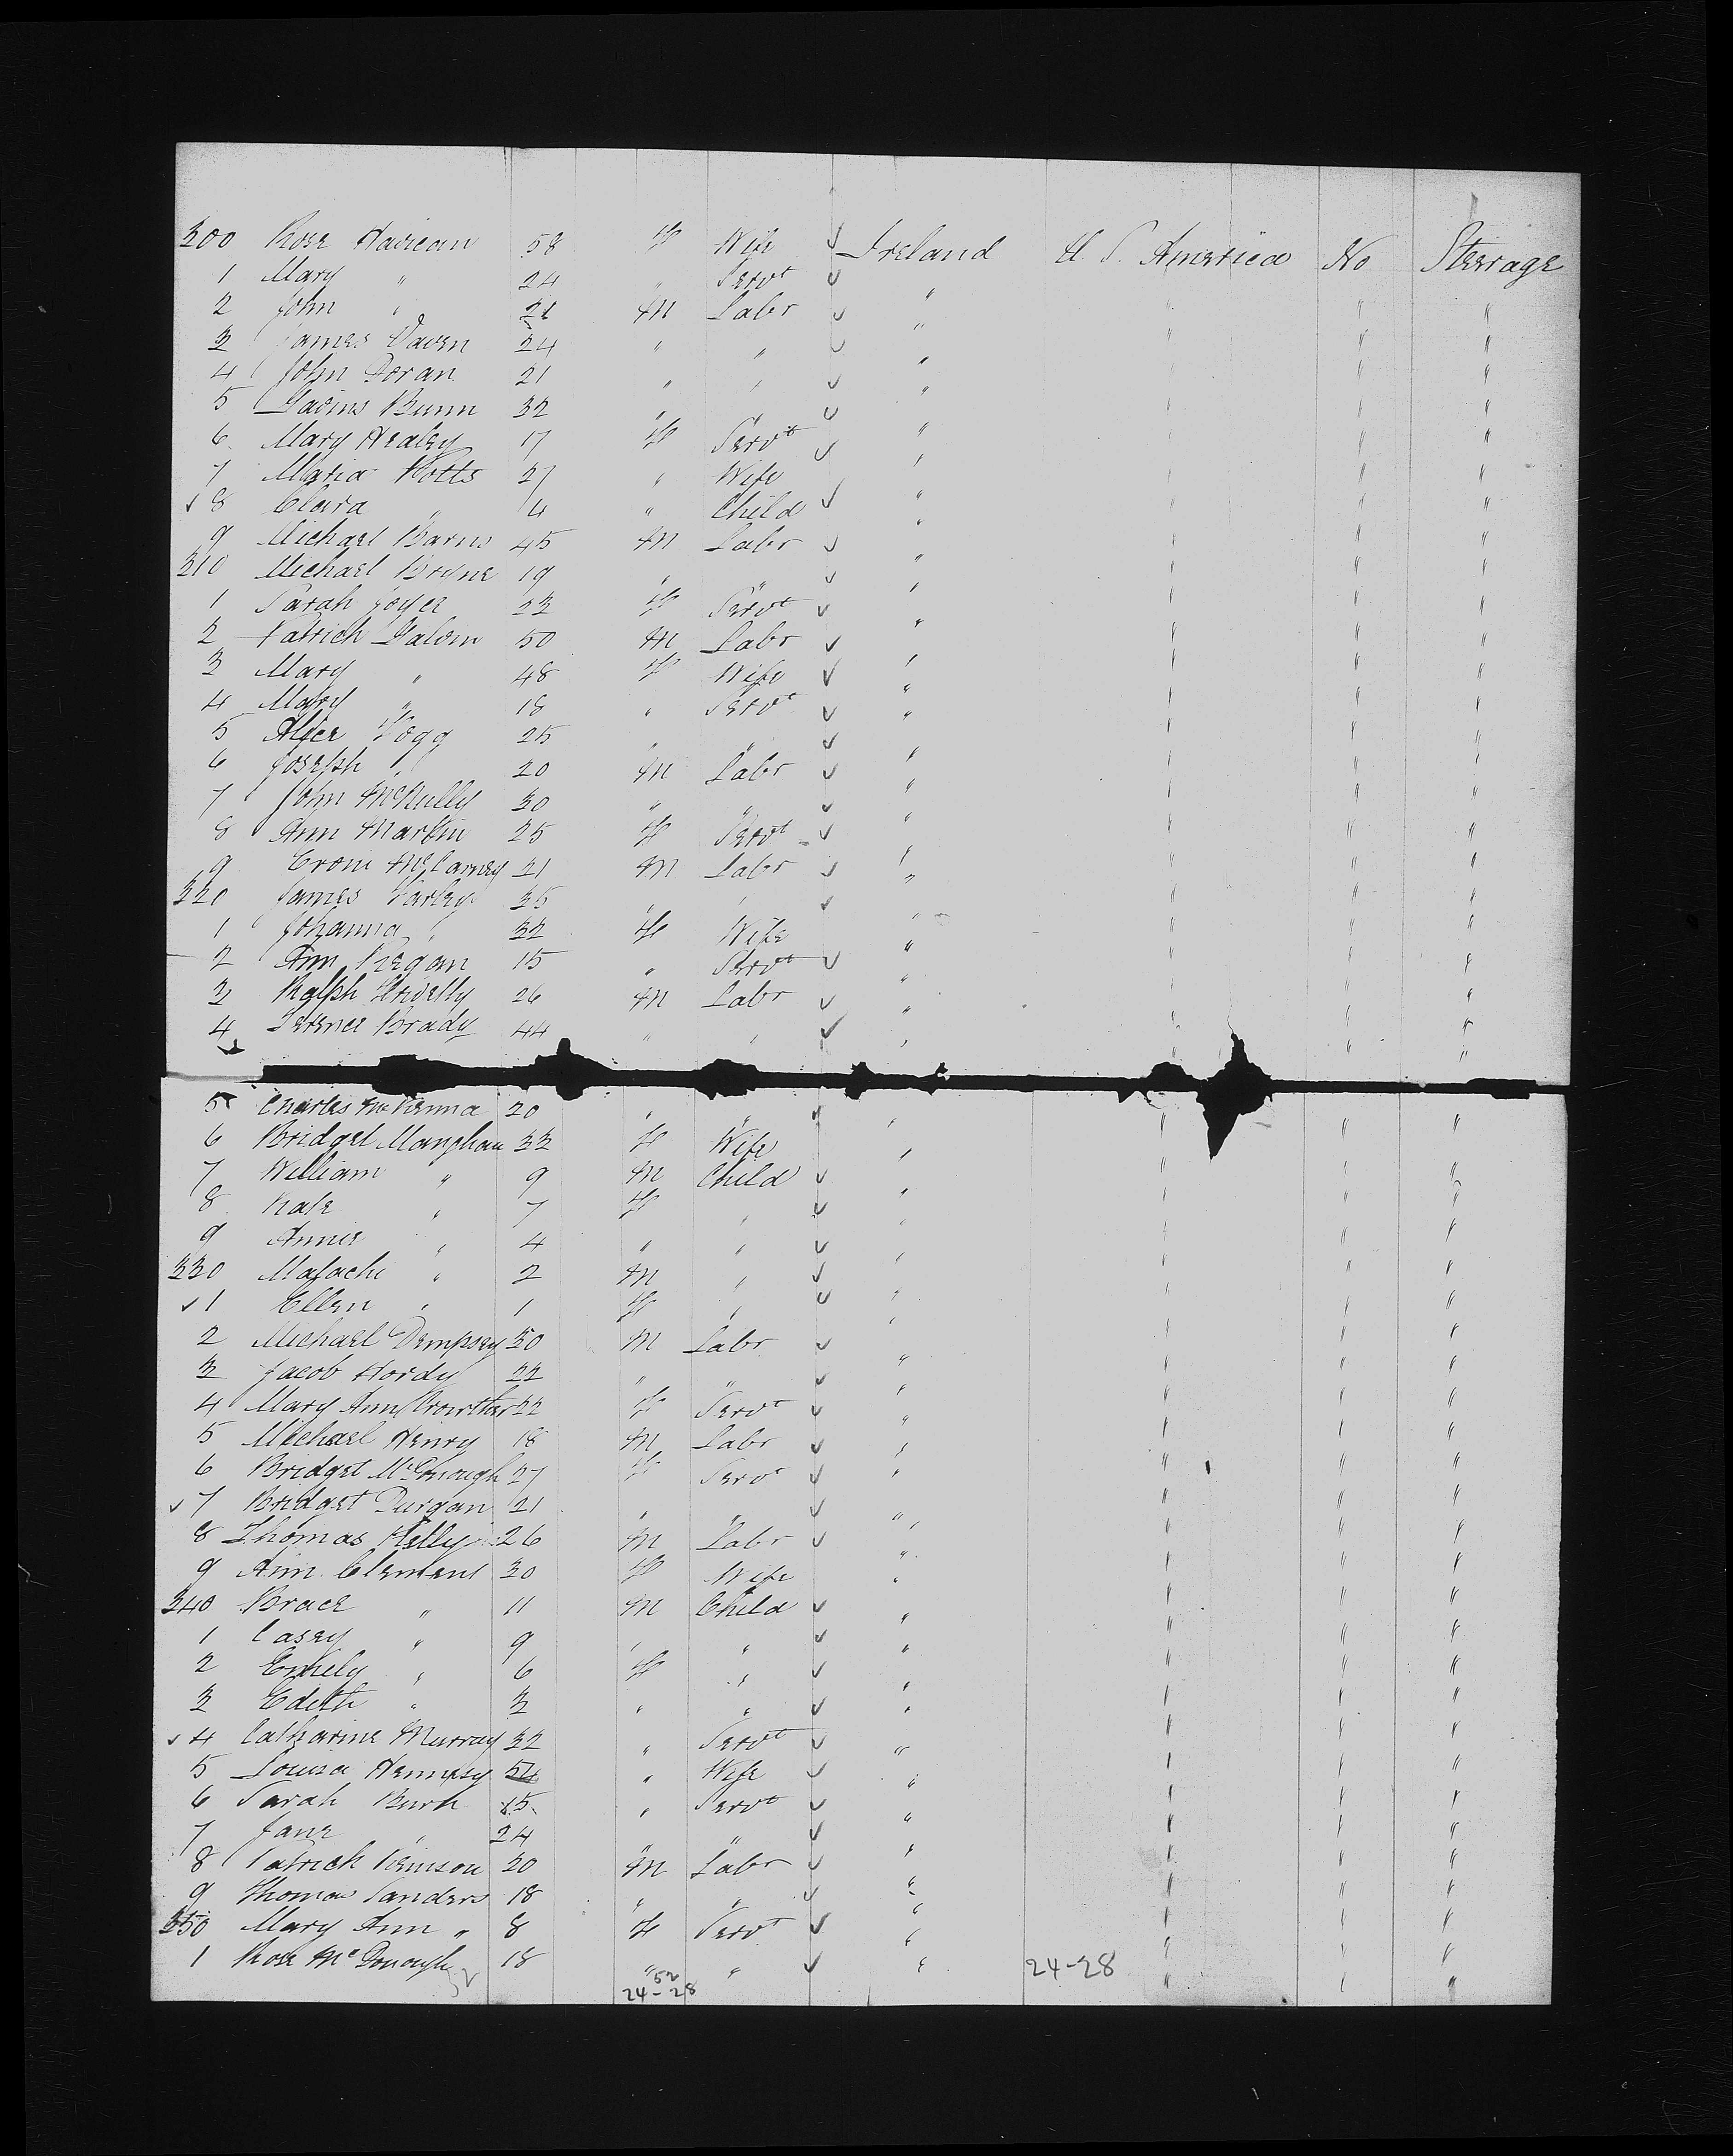 300 Rose Havican 58 F Wife ✓ Ireland U. S. America No Steerage
1 Mary " 24 " Servt ✓ " " " "
2 John " 21 M Labr ✓ " " " "
3 James Daven 24 " " ✓ " " " "
4 John Doran 21 " " ✓ " " " "
5 Bunn 32 " " ✓ " " " "
6 Mary Healey 17 F Servt ✓ " " " "
7 Maria Potts 27 " Wife " " " "
✓ 8 Clara " 4 " Child ✓ " " " "
9 Michael Barns 45 M Labr ✓ " " " "
310 Michael Bryne 19 " " ✓ " " " "
1 Sarah Joyce 23 F Servt ✓ " " " "
2 Patrick 50 M Labr ✓ " " " "
3 Mary " 48 F Wife ✓ " " " "
4 Mary " 18 " Servt ✓ " " " "
5 Alice 25 " " ✓ " " " "
6 Joseph " 20 M Labr ✓ " " " "
7 John McNully 30 " " ✓ " " " "
8 Ann Martin 25 F Servt ✓ " " " "
9 21 M Labr ✓ " " " "
320 James Varley 35 " " ✓ " " " "
1 Johanna " 32 F Wife " " " "
2 Ann Keegan 15 " Servt ✓ " " " "
3 Ralph 26 M Labr ✓ " " " "
4 Terence Brady 44 " " ✓ " " " "
5 Charles McKenna 20 " " ✓ " " " "
6 Bridget Manghan 33 F Wife " " " "
7 William " 9 M Child ✓ " " " "
8 Kate " 7 F " ✓ " " " "
9 Annie " 4 " " ✓ " " " "
330 Malachi " 2 M " ✓ " " " "
✓ 1 Ellen " 1 F " ✓ " " " "
2 Michael Dempsey 30 M Labr ✓ " " " "
3 Jacob Hordy 22 " " ✓ " " " "
4 Mary Ann Crowther 22 F Servt ✓ " " " "
5 Michael Henry 18 M Labr ✓ " " " "
6 Bridget McDonough 27 F Servt ✓ " " " "
✓ 7 Bridget Durgan 21 " " ✓ " " " "
8 Thomas Kelly 26 M Labr ✓ " " " "
9 Ann Clement 30 F Wife " " " "
340 Brace " 11 M Child ✓ " " " "
1 Casey " 9 " " ✓ " " " "
2 Emily " 6 F " ✓ " " " "
3 Edith " 3 " " ✓ " " " "
✓ 4 Catharine Murray 32 " Servt ✓ " " " "
5 Louisa Hennesy 54 " Wife ✓ " " " "
6 Sarah Burk 15 " Servt ✓ " " " "
7 Jane " 24 " " ✓ " " " "
8 Patrick 20 M Labr ✓ " " " "
9 Thomas Sanders 18 " " ✓ " " " "
350 Mary Ann " 8 F Servt ✓ " " " "
1 Rose McDonough 18 " " ✓ " " " "
52
24-28 24-28